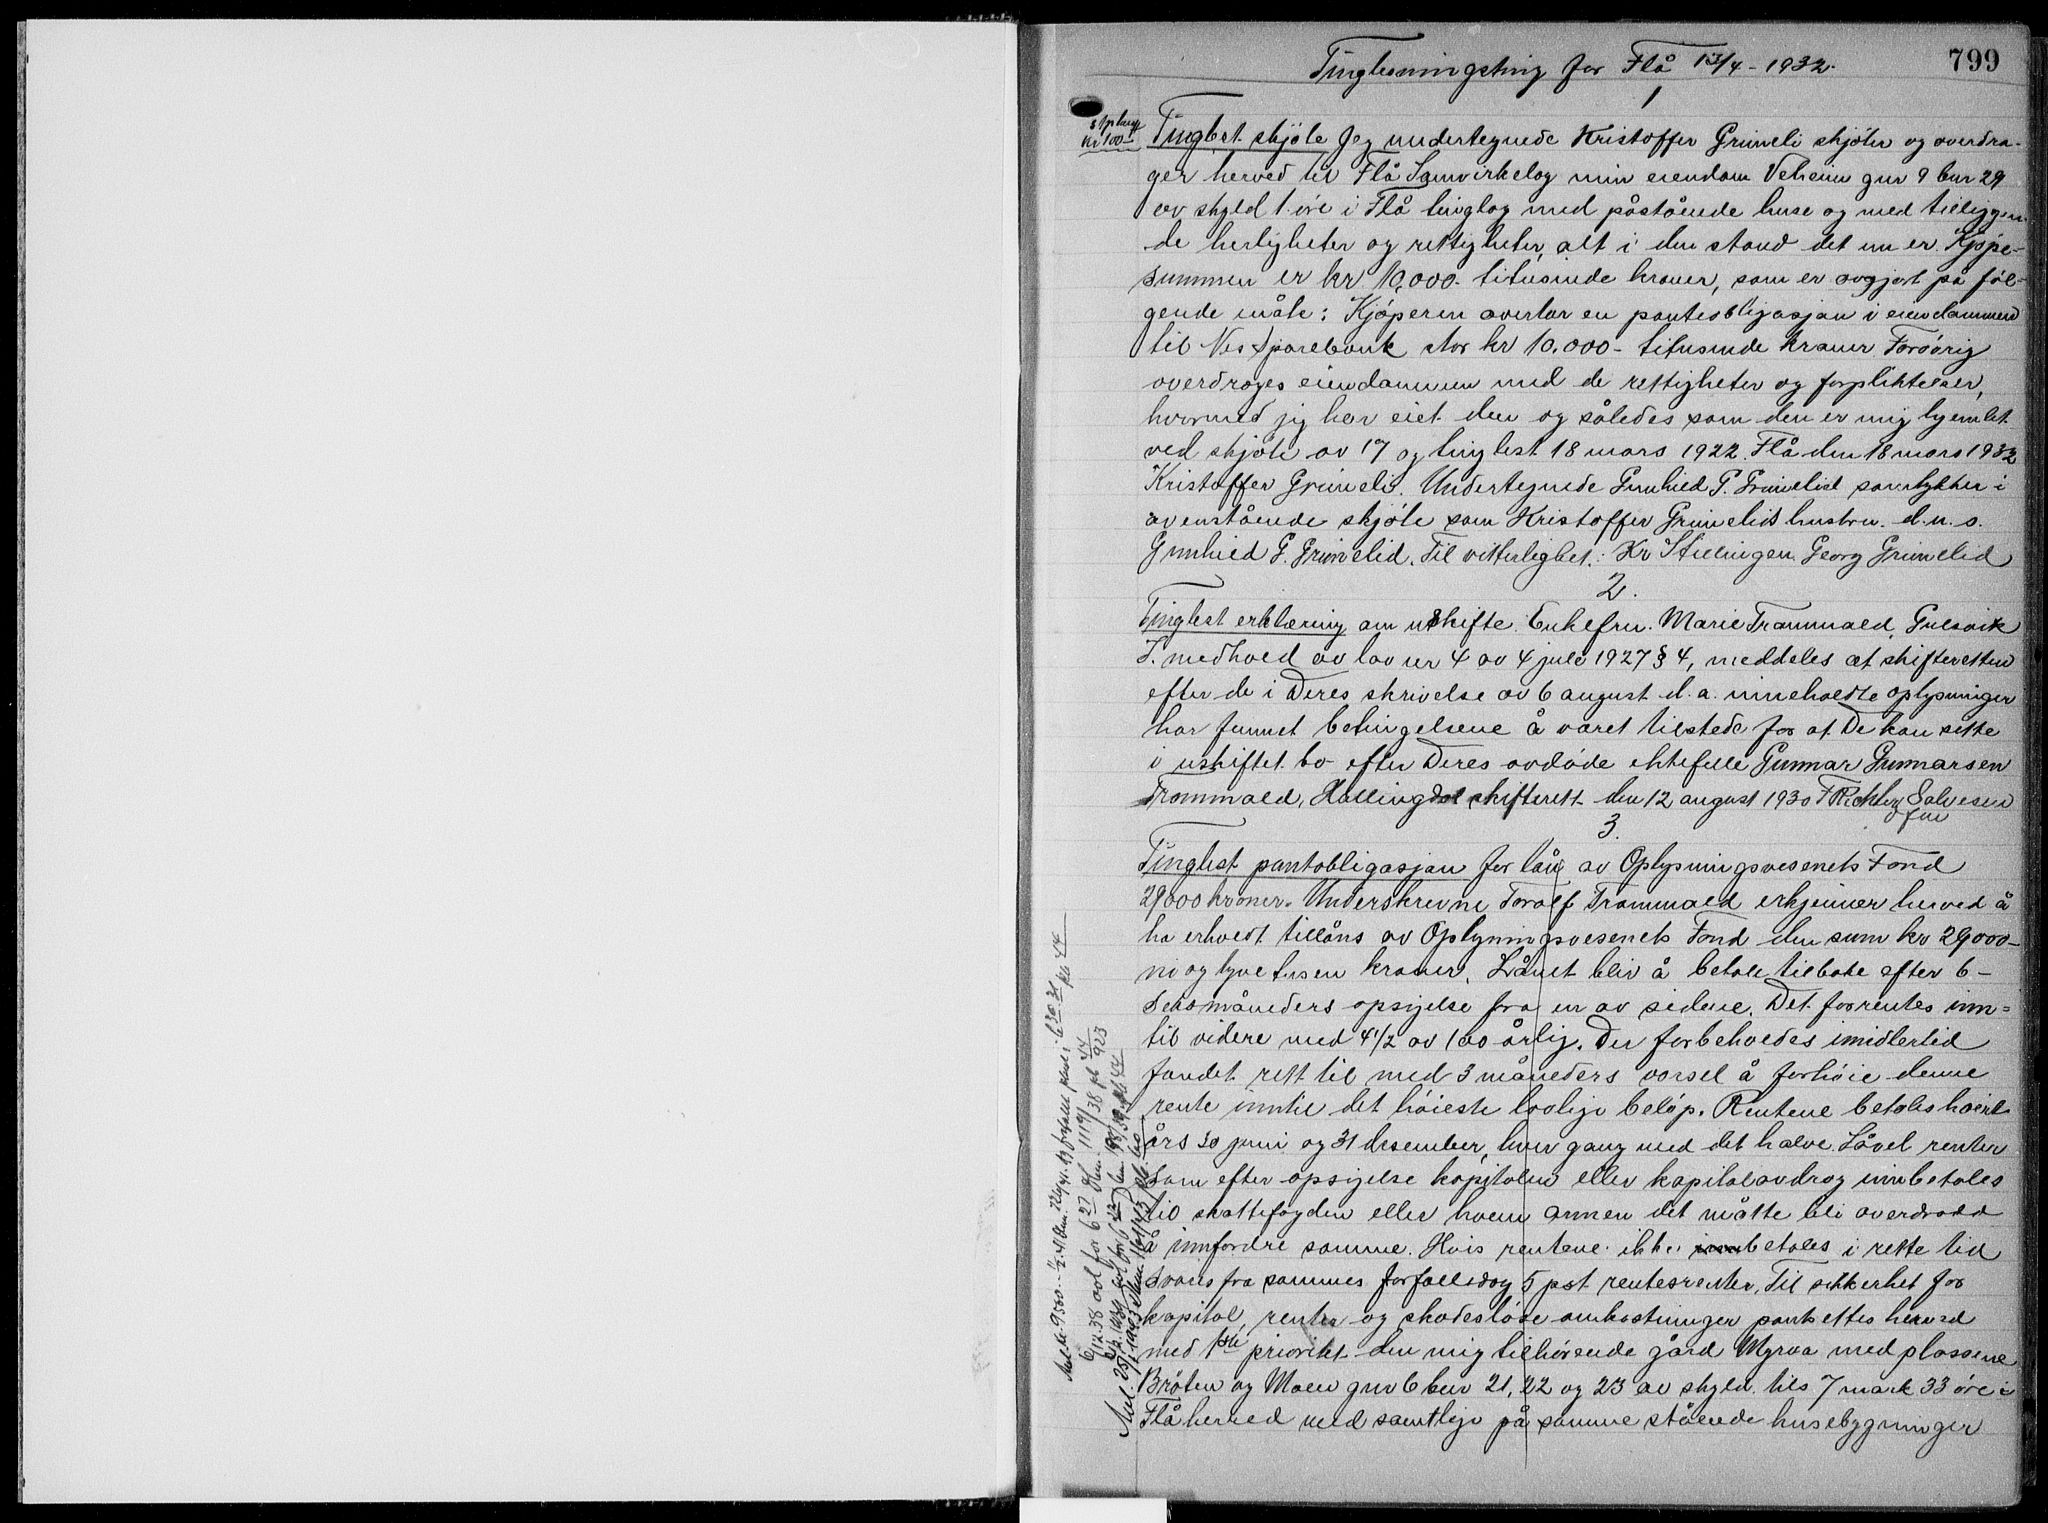 799
Tinglesningsting for Flå 13/4 - 1932.
1
Stpl.avg.
Kr 100-
Tinglest skjöte Jeg undertegnede Kristoffer Grimeli skjöter og overdra-
ger herved til Flå Samvirkelag min eiendom Veheim gnr 9 bnr 29
av skyld 1 öre i Flå tinglag med påstående huse og med tilliggen-
de herligheter og rettigheter, alt i den stand det nu er. Kjöpe-
summen er kr 10,000- titusinde kroner, som er avgjort på föl-
gende måte: Kjöperen overtar en pantesbligasjon i eiendommen
til Nes Sparebank stor kr 10.000- titusinde kroner Foröврig
overdrages eiendommen med de rettigheter og forpliktelser,
hvormed jeg har eiet den og således som den er mig hjemlet
ved skjöte av 17 og tinglest 18 mars 1922. Flå den 18 mars 1932
Kristoffer Grimeli. Undertegnede Gunhild G. Grimelid samtykker i
ovenstående skjöte som Kristoffer Grimelids hustru. d.u.s.
Gunhild G. Grimelid. Til vitterlighet: Kr Stillingen Georg Grimelid
2.
Tinglest erklæring om uskifte. Enkefru Marie Trommald, Gulsvik
I. medhold av lov nr 4 av 4 juli 1927 § 4, meddeles at skifteretten
efter de i Deres skrivelse av 6 august d.a. inneholdte oplysninger
har funnet betingelsene å været tilstede for at De kan sitte
i uskiftet bo efter Deres avdöde ektefelle Gunnar Gunnarsen
Trommald, Hallingdal skifterett den 12 august 1930 F Richter Salvesen
fm
3.
Tinglest pantobligasjon for lån av Oplysningsvesenets Fond
29000 kroner. Underskrevne Toralf Trommald erkjenner herved å
ha erholdt tillåns av Oplyningsvesenets Fond den sum kr 29000-
ni og tyve tusen kroner. Lånet blir å betale tilbake efter 6-
seks måneders opsijelse fra en av sidene. Det forrentes inn=
til videre med 4 1/2 av 100 årlig. Der forbeholdes imidlertid
fondet rett til med 3 måneders varsel å forhöie denne
rente inntil det höieste lovlige belöp. Rentene betales hvert
års 30 juni og 31 desember, hver gang med det halve. Såvel renter
som efter opsijelse kapitalen eller kapitalavdrag innbetales
til skattefogden eller hvem annen det måtte bli overdradd
å innfordre samme. Hvis rentene ikke betales i rette tid
svares fra sammes forfallsdag 5 pst rentesrenter. Til sikkerhet for
kapital, renter og skadeslöse omkostninger pantsettes herved
med 1ste prioritet den mig tilhörende gård Myraa med plassene
Bröten og Moen gnr 6 bnr 21, 22 og 23 av skyld tils 7 mark 33 öre i
Flå herred med samtlige på samme stående husebygninger